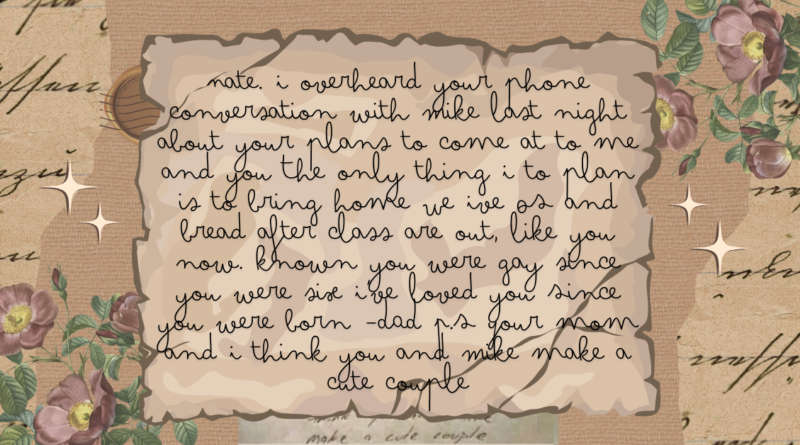 nate. i overheard your phone
conversation with mike last night
about your plans to come at to me
and you the only thing i to plan
is to bring home we ive os and
bread after class are out, like you
now. known you were gay since
you were six i've loved you since
you were born -dad p.s your mom
and i think you and mike make a
cute couple
make a cute couple